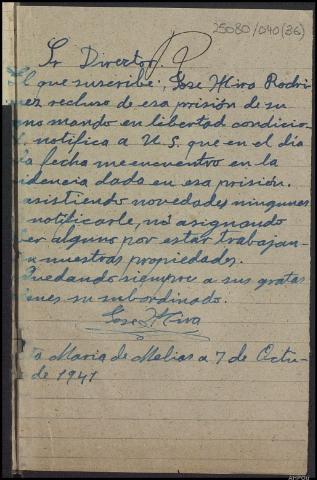 25080/040(36)
Sr Director
El que suscribe; Jose Miro Rodri
uez recluso de esa prisión de su
no mando en libertad condicio-
notifica a U.S. que en el dia
a fecha me encuentro en la
idencia dada en esa prisión.
asistiendo novedades ningunas
notificarle, no asignando
er alguno por estar trabajan-
nuestras propiedades.
Quedando siempre a sus gratas
enes su subordinado.
Jose Miro
ta Maria de Melias a 7 de Octu-
de 1941
AHPOU